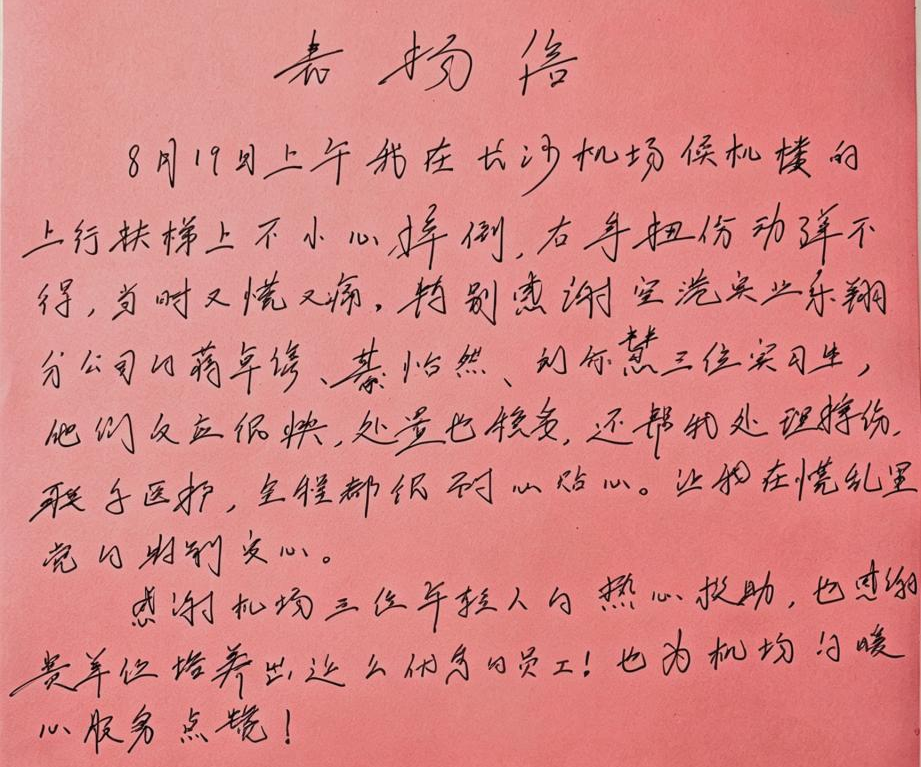 表扬信
8月19日上午我在长沙机场候机楼的
上行扶梯上不小心摔倒,右手扭伤动弹不
得,当时又慌又痛。特别感谢空港实业乐翔
分公司的蒋卓、綦怡然、刘尔慧三位实习生,
他们反应很快,处置也稳妥,还帮我处理擦伤,
联系医护,全程都很耐心贴心。让我在慌乱里
觉的特别安心。
感谢机场三位年轻人的热心救助,也感谢
贵单位培养出这么优秀的员工!也为机场的暖
心服务点赞!